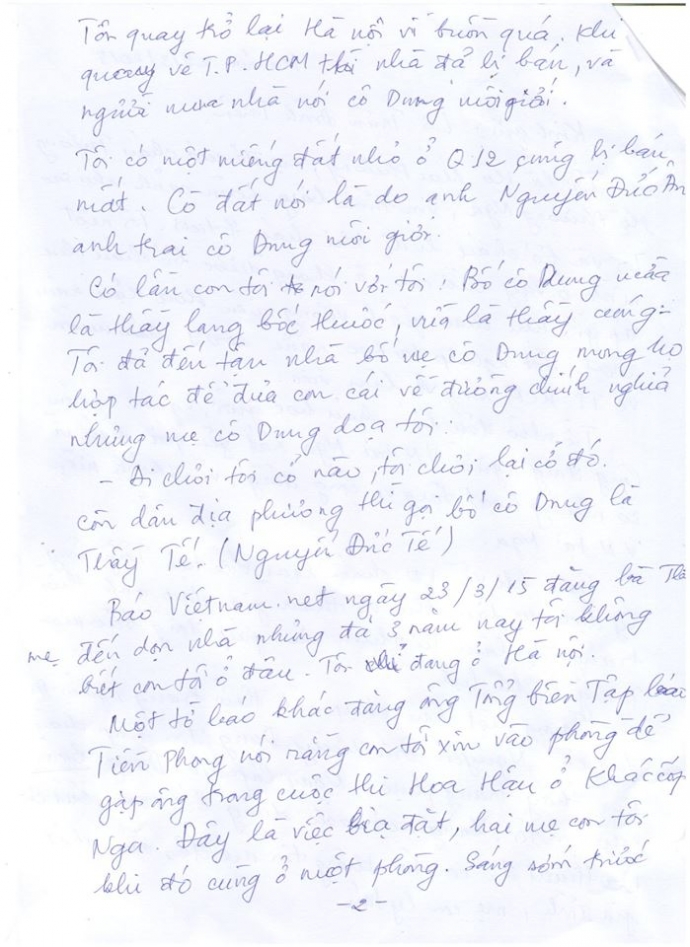 Tôi quay trở lại Hà nội vì buồn quá. Khi
quay về T.P. HCM thì nhà đã bị bán, và
người mua nhà nói cô Dung môi giới.
Tôi có một miếng đất nhỏ ở Q12 cũng bị bán
mất. Cò đất nói là do anh Nguyễn Đức An
anh trai cô Dung môi giới.
Có lần con tôi nói với tôi: Bố cô Dung vừa
là thầy lang bốc thuốc, vừa là thầy cúng.
Tôi đã đến tận nhà bố mẹ cô Dung mong họ
hợp tác để đưa con cái về đường chính nghĩa
nhưng mẹ cô Dung dọa tôi.
- Ai chơi tôi cỏ nào, tôi chơi lại cỏ đó.
còn dân địa phương thì gọi bố cô Dung là
Thầy Tế. (Nguyễn Đức Tế)
Báo Vietnam.net ngày 23/3/15 đăng bà
mẹ đến dọn nhà nhưng đã 3 năm nay tôi không
biết con tôi ở đâu. Tôi đang ở Hà nội.
Một tờ báo khác đăng ông Tổng biên Tập báo
Tiền Phong nói rằng con tôi xin vào phòng để
gặp ông trong cuộc thi Hoa Hậu ở
Nga. Đây là việc bịa đặt, hai mẹ con tôi
khi đó cùng ở một phòng. Sáng sớm trước
-2-